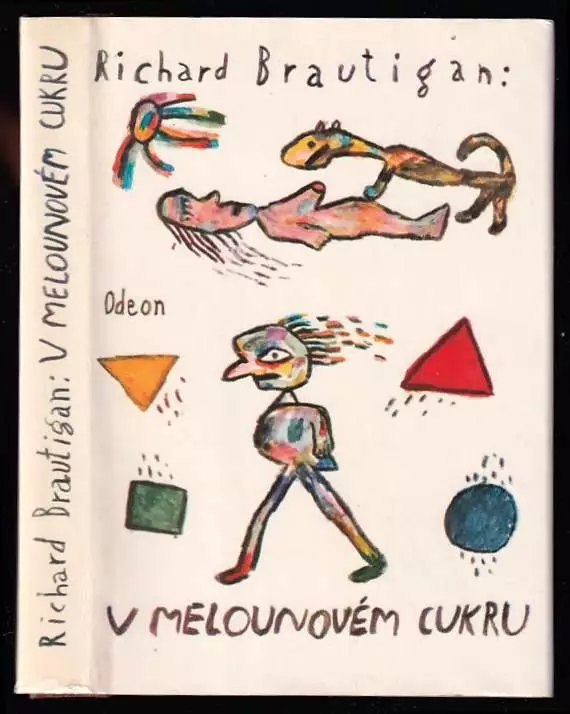 Richard Brautigan: V MELOUNOVÉM CUKRU
Richard Brautigan:
Odeon
V MELOUNOVÉM CUKRU